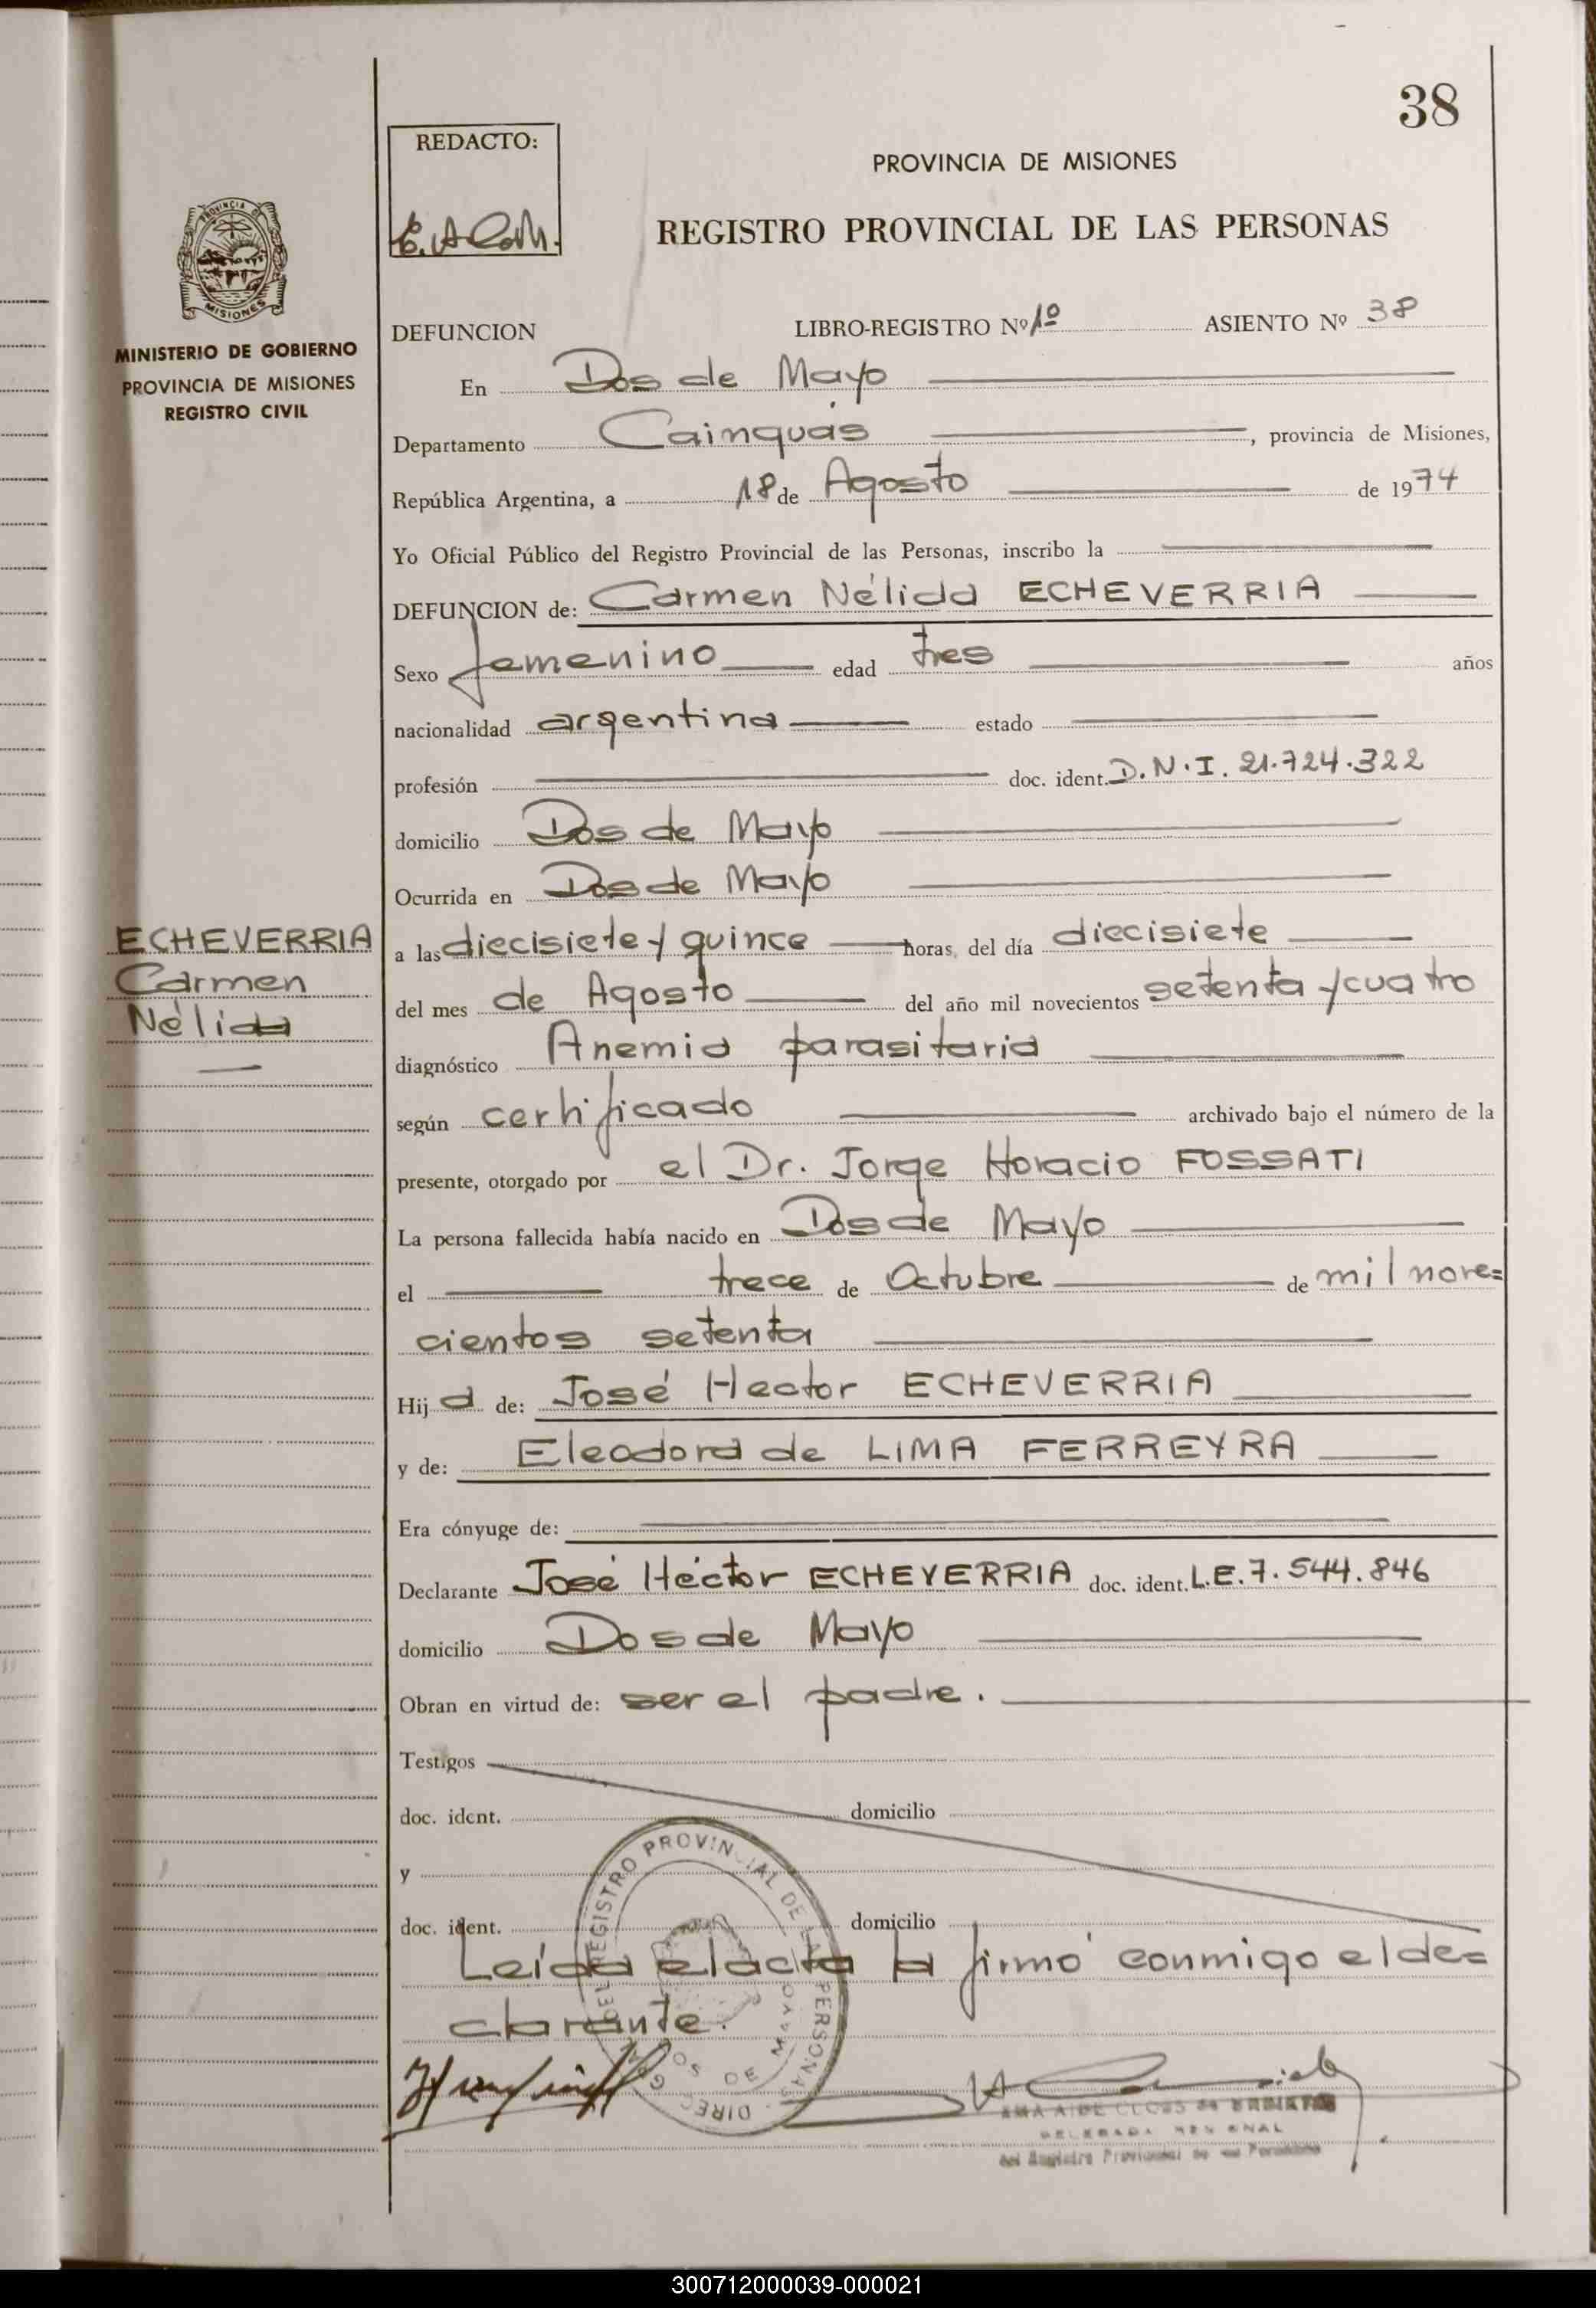 38
REDACTO:
PROVINCIA DE MISIONES
REGISTRO PROVINCIAL DE LAS PERSONAS
PROVINCIA DE
MISIONES
MINISTERIO DE GOBIERNO
PROVINCIA DE MISIONES
REGISTRO CIVIL
DEFUNCION LIBRO-REGISTRO Nº 1º ASIENTO Nº 38
En Dos de Mayo
Departamento Cainguás, provincia de Misiones,
República Argentina, a 18 de Agosto de 1974
Yo Oficial Público del Registro Provincial de las Personas, inscribo la
DEFUNCION de: Carmen Nélida ECHEVERRIA
Sexo femenino edad tres años
nacionalidad argentina estado
profesión doc. ident. D.N.I. 21.724.322
domicilio Dos de Mayo
Ocurrida en Dos de Mayo
ECHEVERRIA
Carmen
Nélida
a las diecisiete y quince horas, del día diecisiete
del mes de Agosto del año mil novecientos setenta y cuatro
diagnóstico Anemia parasitaria
según certificado archivado bajo el número de la
presente, otorgado por el Dr. Jorge Horacio FOSSATI
La persona fallecida había nacido en Dos de Mayo
el trece de Octubre de mil nove=
cientos setenta
Hij a de: José Hector ECHEVERRIA
y de: Eleodora de LIMA FERREYRA
Era cónyuge de:
Declarante José Héctor ECHEVERRIA doc. ident. L.E. 7.544.846
domicilio Dos de Mayo
Obran en virtud de: ser el padre.
Testigos
doc. ident. domicilio
y
doc. ident. domicilio
Leída el acta la firmó conmigo el de=
clarante.
REGISTRO PROVINCIAL DE LAS PERSONAS
DOS DE MAYO
del Registro Provincial de las Personas
300712000039-000021